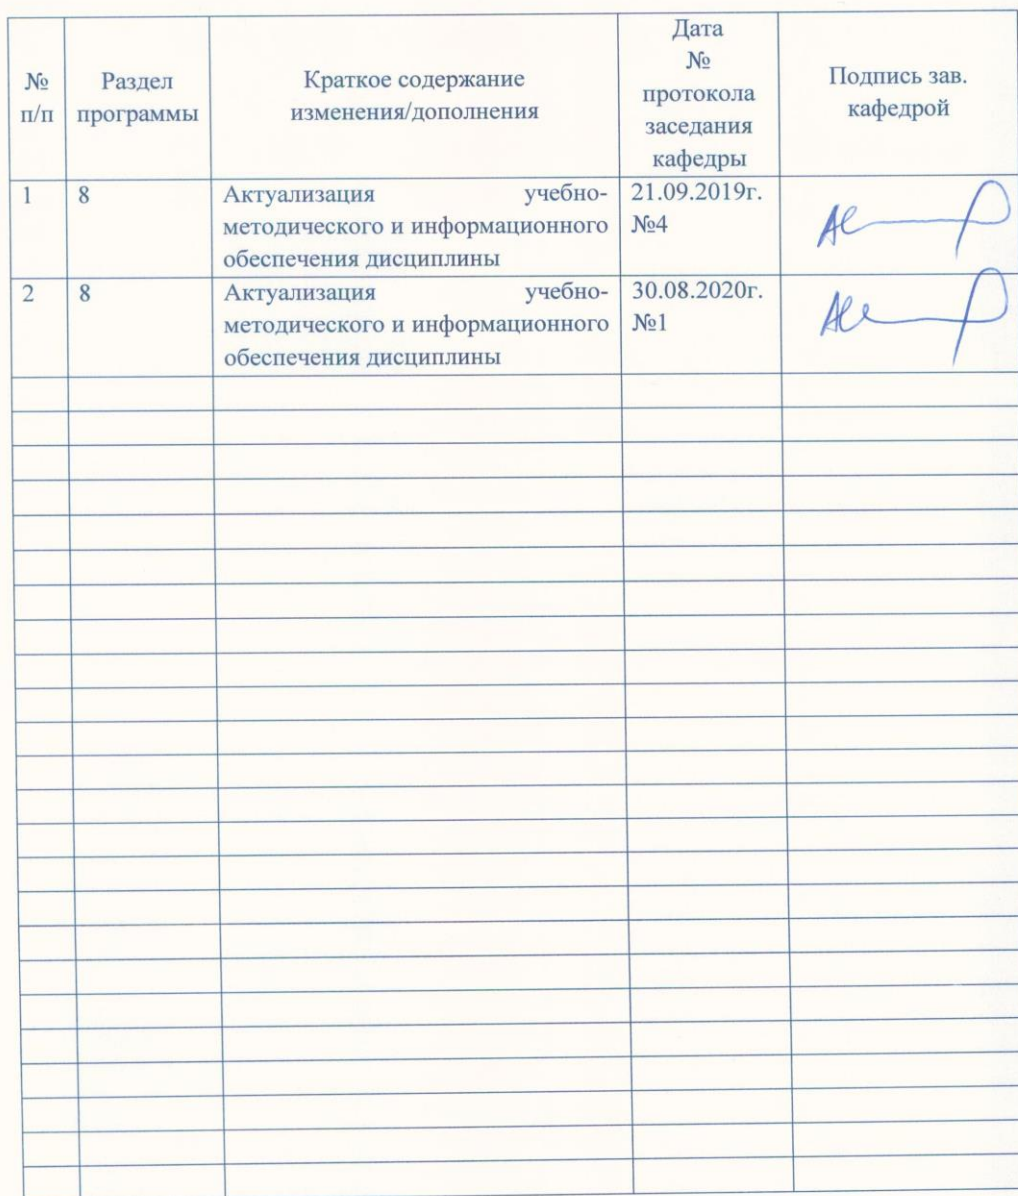 №
п/п
Раздел
программы
Краткое содержание
изменения/дополнения
Дата
№
протокола
заседания
кафедры
Подпись зав.
кафедрой
1
8
Актуализация учебно-
методического и информационного
обеспечения дисциплины
21.09.2019г.
№4
2
8
Актуализация учебно-
методического и информационного
обеспечения дисциплины
30.08.2020г.
№1